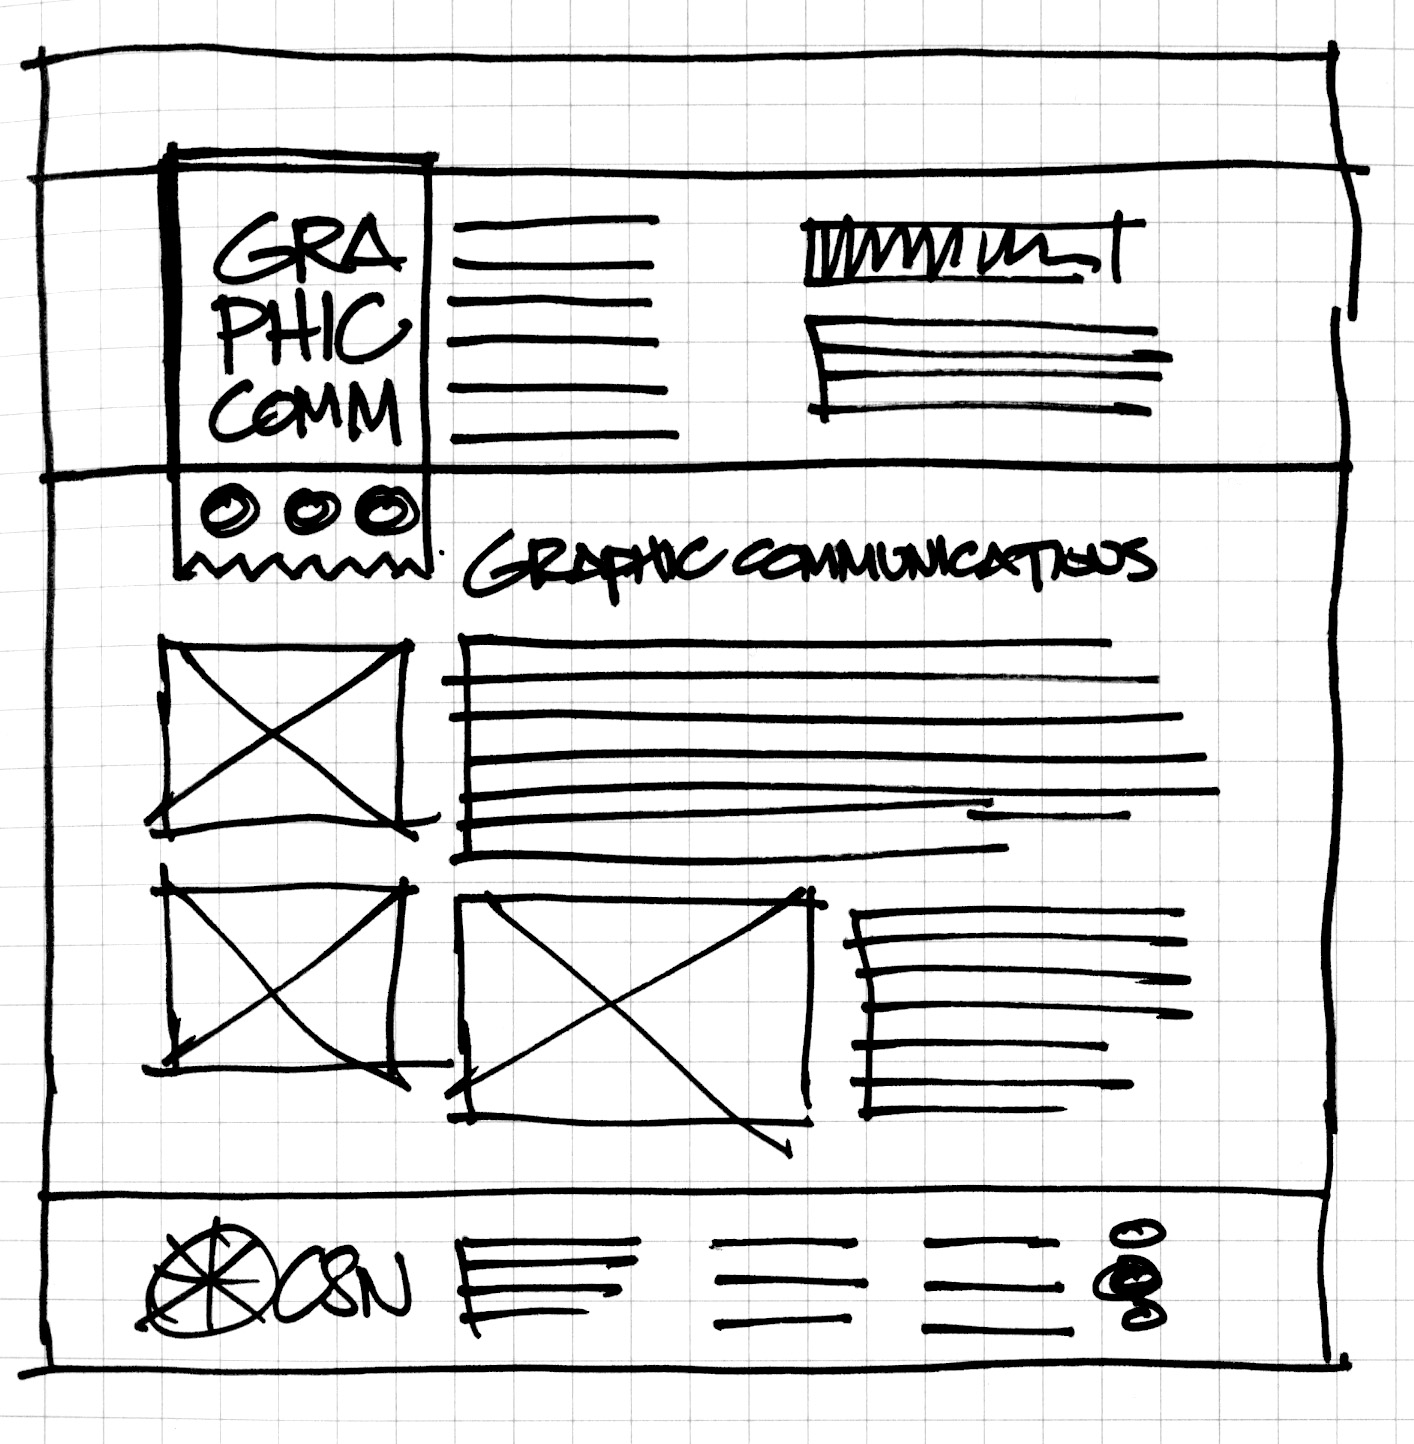 GRA
PHIC
COMM
GRAPHIC COMMUNICATIONS
CSN